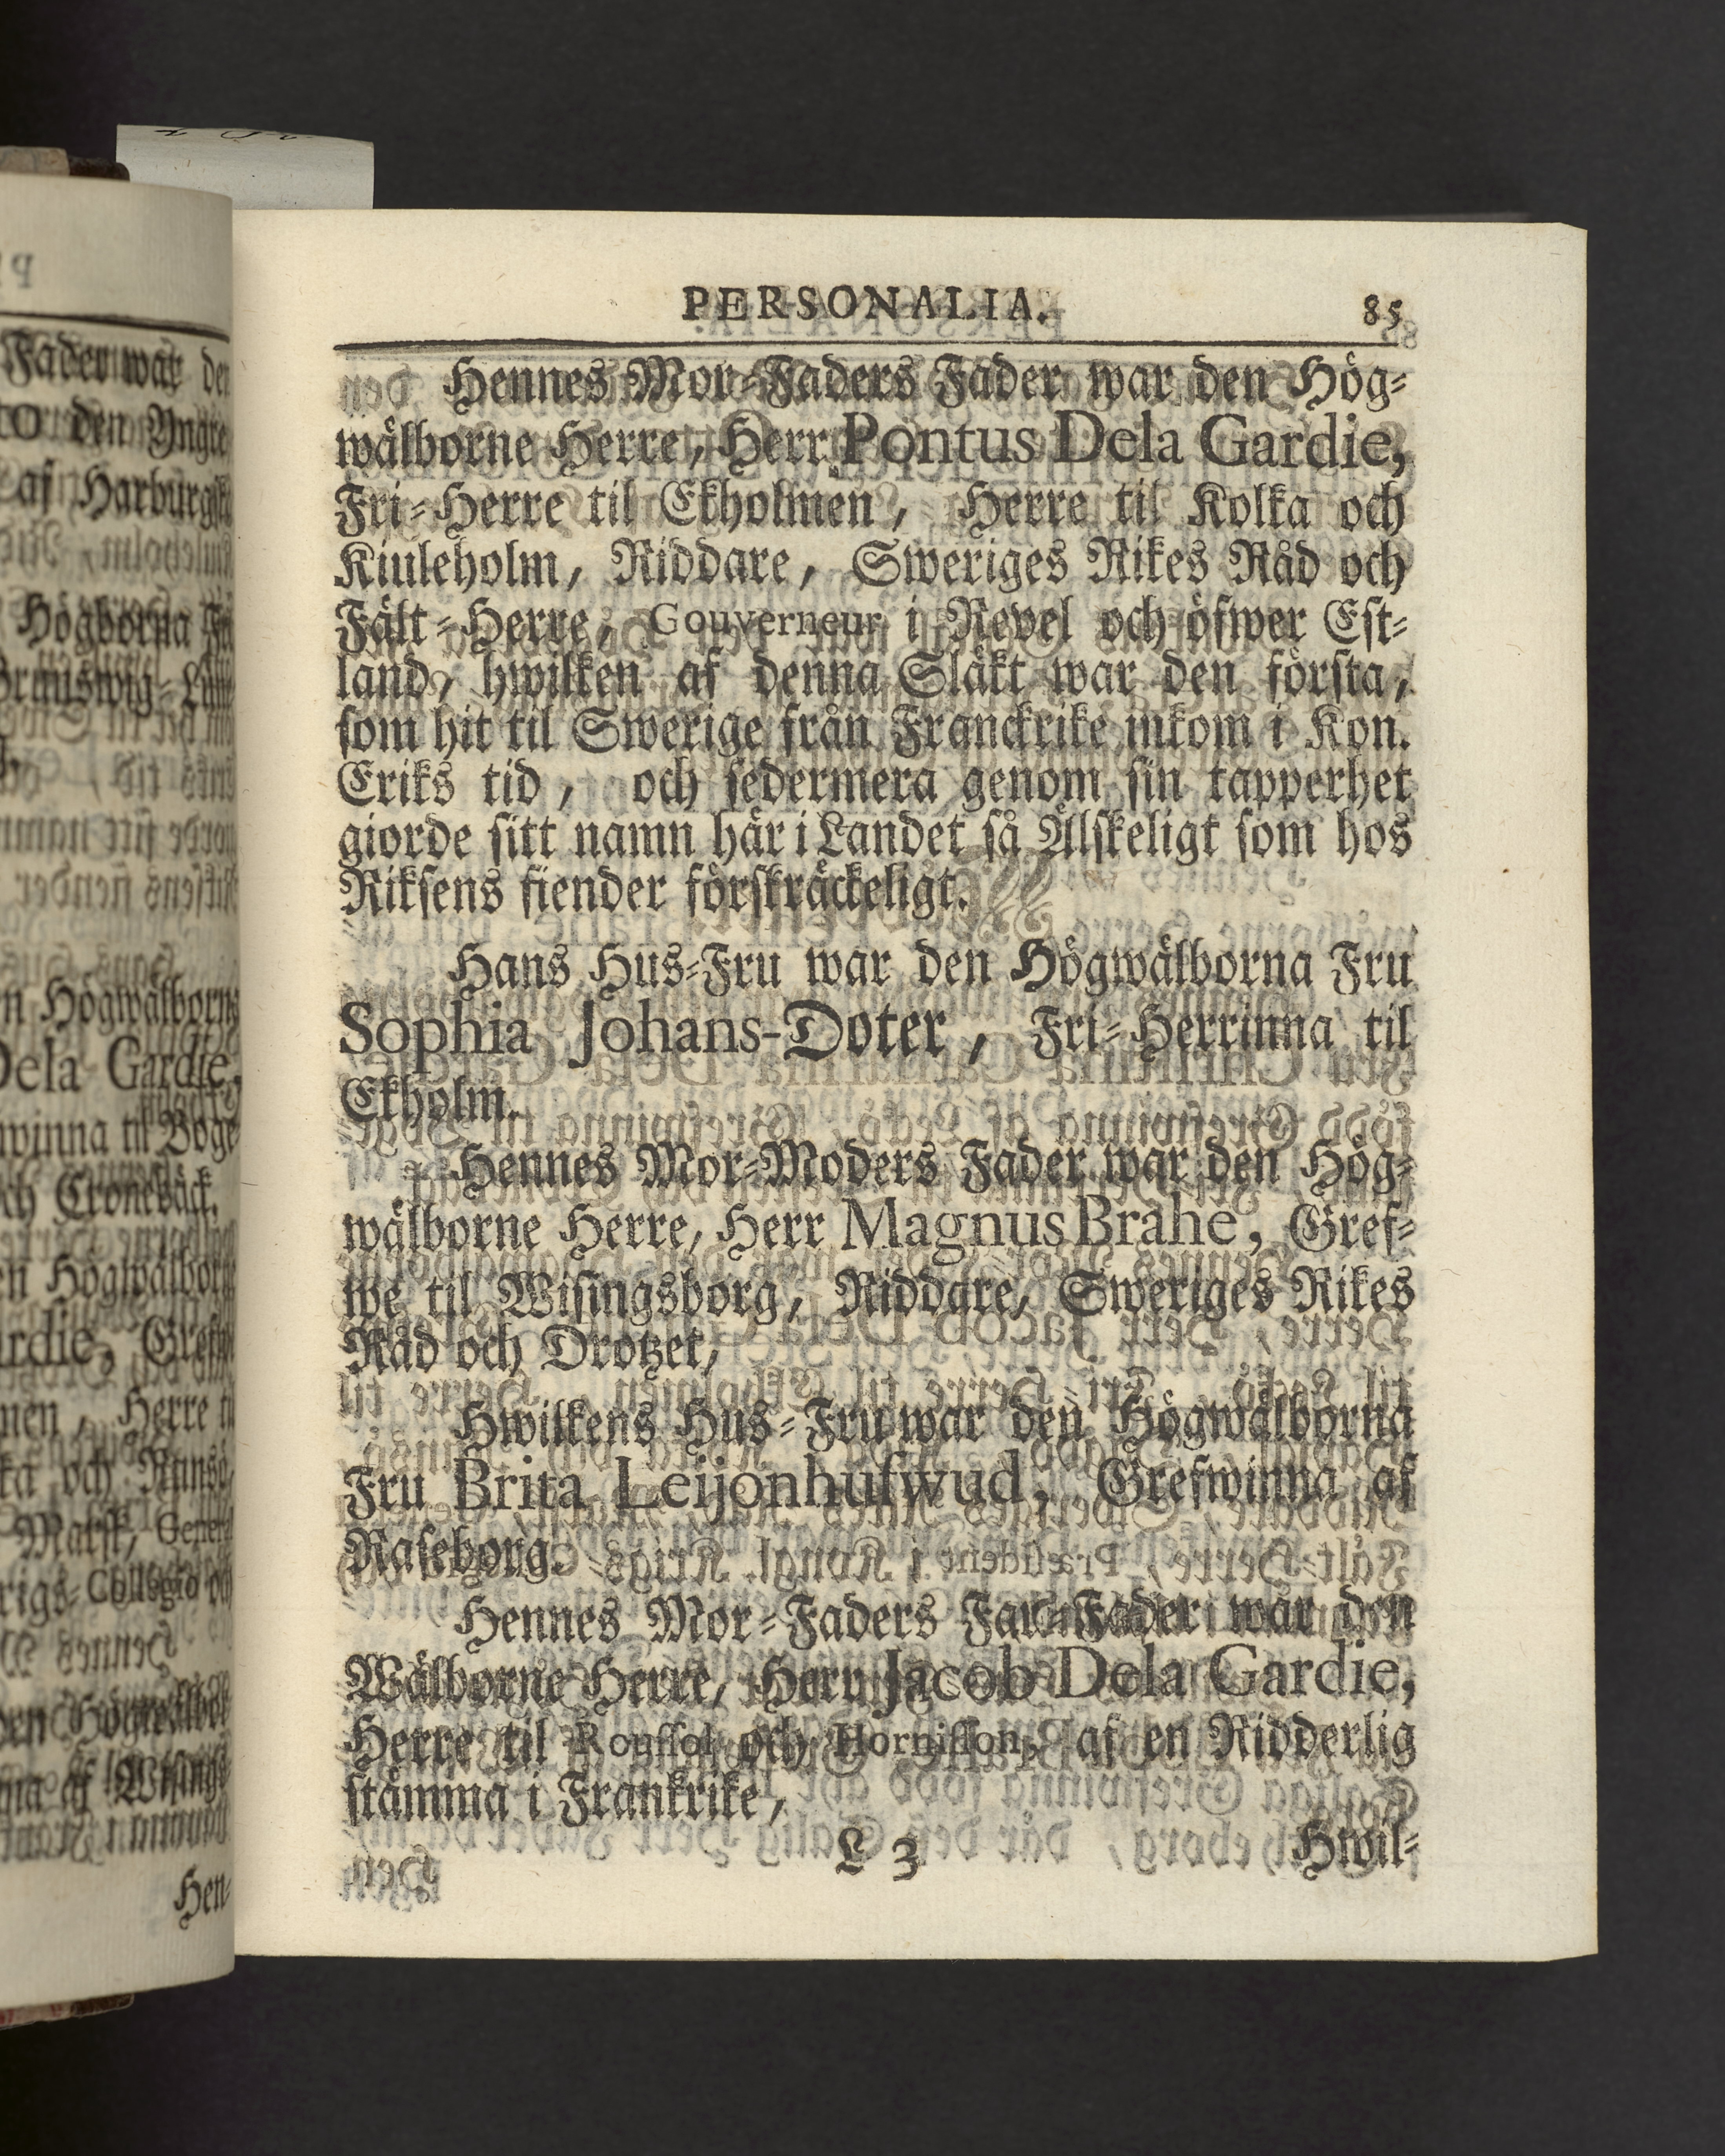 PERSONALIA. 85
Hennes Mor-Faders Fader war den Hög-
wälborne Herre, Herr Pontus Dela Gardie,
Fri-Herre til Ekholmen, Herre til Kolka och
Kiuleholm, Riddare, Sweriges Rikes Råd och
Fält-Herre, Gouverneur i Revel och öfwer Est-
land, hwilken af denna Släkt war den första,
som hit til Swerige från Franckrike inkom i Kon.
Eriks tid, och sedermera genom sin tapperhet
giorde sitt namn här i Landet så Älskeligt som hos
Riksens fiender förskräckeligt.
Hans Hus-Fru war den Högwälborna Fru
Sophia Johans-Doter, Fri-Herrinna til
Ekholm.
Hennes Mor-Moders Fader war den Hög-
wälborne Herre, Herr Magnus Brahe, Gref-
we til Wisingsborg, Riddare, Sweriges Rikes
Råd och Drotzet,
Hwilkens Hus-Fru war den Högwälborna
Fru Brita Leijonhufwud, Grefwinna af
Raseborg.
Hennes Mor-Faders Far-Fader war den
Wälborne Herre, Herr Jacob Dela Gardie,
Herre til Roussol och Hornisson, af en Ridderlig
stämma i Frankrike,
L 3 Hwil-
Fader war den
den Yngre
af Harburgska
Högborna
n Högwälborna
Dela Gardie,
winna til Boge
och Cronebäck.
en Högwälborne
Herre til
och Runsö,
Marsk, General
Collegio och
af Wisings
Hen-